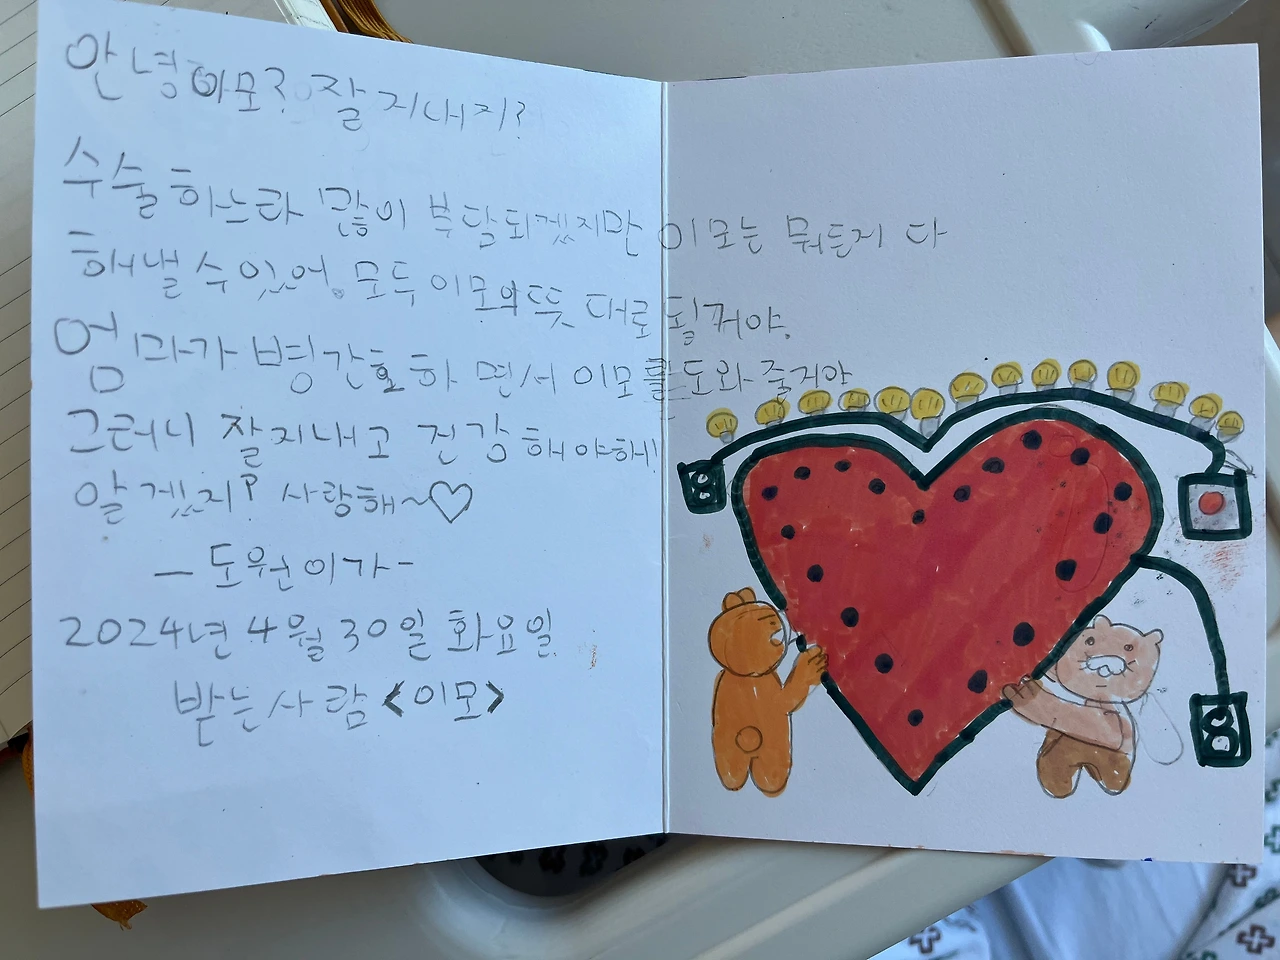 안녕 이모? 잘 지내지?
수술 하느라 많이 부담되겠지만 이모는 뭐든지 다
해낼 수 있어. 모두 이모와 뜻 대로 될꺼야.
엄마가 병간호 하면서 이모를 도와 줄거야
그러니 잘지내고 건강 해야해!
알겠지? 사랑해~♡
- 도원이가 -
2024년 4월 30일 화요일.
받는사람 <이모>